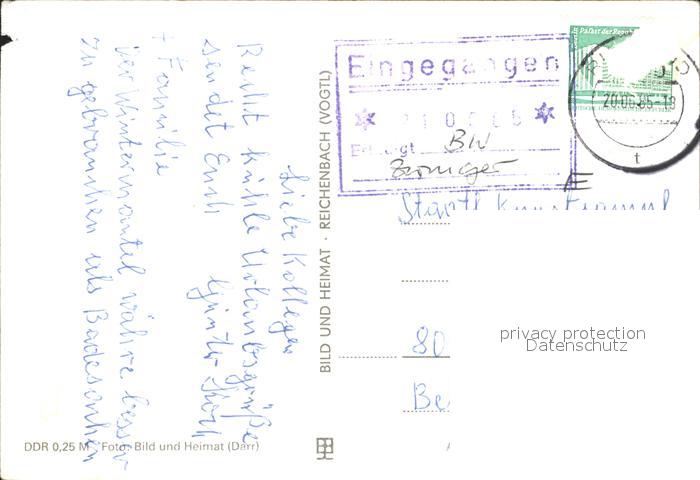 Liebe Kollegen
Recht kühle Urlaubsgrüße
sendet Euch Günter Koch
+ Familie
der Wintermantel währe besser
zu gebrauchen als Badesachen
DDR 0,25 M Foto: Bild und Heimat (Darr)
BILD UND HEIMAT · REICHENBACH (VOGTL)
Eingegangen
BIV
Palast der Republik
20.06.85-18
t
Staatl. Kunstsamml
80
Be
privacy protection
Datenschutz